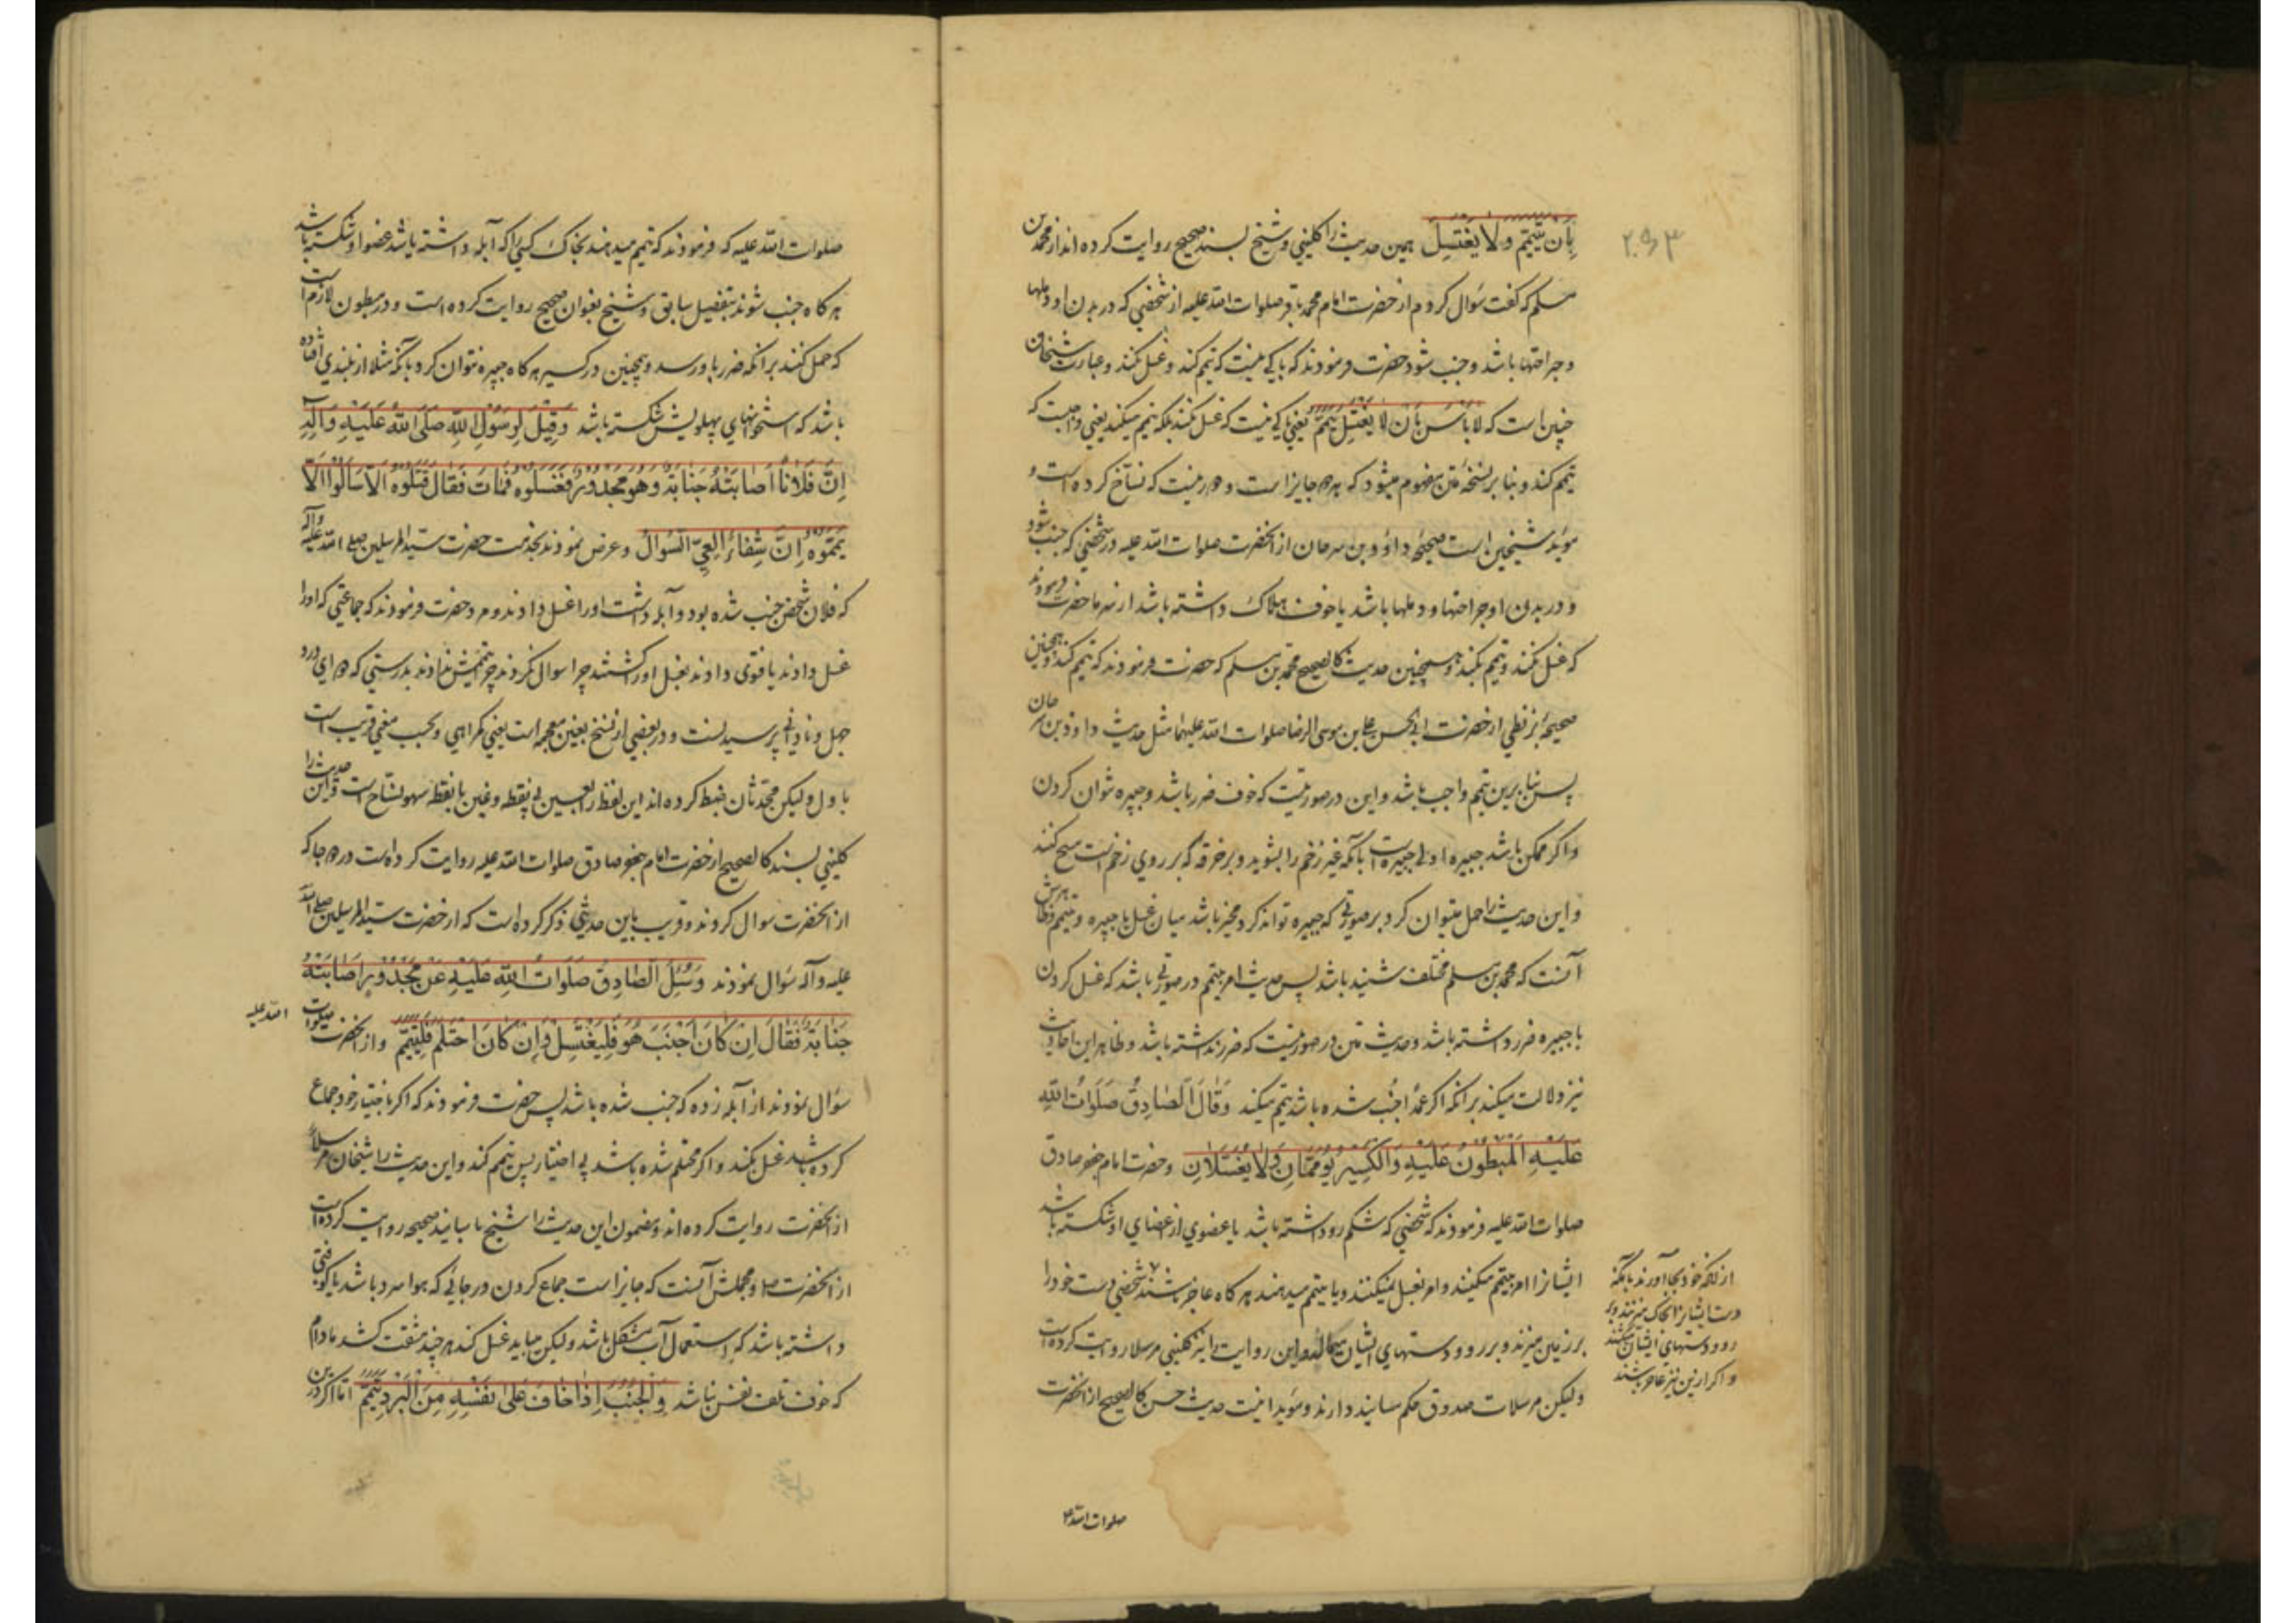 ۲۰۹۳
بِاَن یَتَیَمَّمَ وَلا یَغْتَسِلَ همین حدیث را کلینی و شیخ بسند صحیح روایت کرده اند از محمد بن
مسلم که گفت سؤال کردم از حضرت امام محمد باقر صلوات الله علیه از شخصی که در بدن او دملها
و جراحتها باشد و جنب شود حضرت فرمودند که باکی نیست که تیمم کند و غسل نکند و عبارت شیخان
چنین است که لا بَاسَ بِاَن لا یَغْتَسِلَ یَتَیَمَّمُ یعنی باکی نیست که غسل نکند بلکه تیمم میکند یعنی واجبست که
تیمم کند و بنا بر نسخهٔ متن مفهوم میشود که هر دو جایز است و دور نیست که نساخ کرده است و
مؤید شیخین است صحیحهٔ داؤد بن سرحان از آنحضرت صلوات الله علیه در شخصی که جنب شود
و در بدن او جراحتها و دملها باشد یا خوف هلاک داشته باشد از سرما حضرت فرمودند
که غسل نکند و تیمم بکند و همچنین حدیث کالصحیح محمد بن مسلم که حضرت فرمودند که تیمم کند و همچنین
صحیحهٔ بزنطی از حضرت ابی الحسن علی بن موسی الرضا صلوات الله علیهما مثل حدیث داؤد بن سرحان
پس بنا برین تیمم واجب باشد و این در صورتیست که خوف ضرر باشد و جبیره نتوان کردن
و اکر ممکن باشد جبیره اولی جبیره است بآنکه غیر زخم را بشوید و بر خرقه که بر روی زخم است مسح کند
و این حدیث را حمل میتوان کرد بر صورتی که جبیره تواند کرد مخیر باشد میان غسل با جبیره و تیمم و ظاهرش
آنست که محمد بن مسلم مختلف شنیده باشد پس حدیث امر بتیمم در صورتی باشد که غسل کردن
با جبیره ضرر داشته باشد و حدیث متن در صورتیست که ضرر نداشته باشد و ظاهر این احادیث
نیز دلالت میکند بر آنکه اکر عمدا جنب شده باشد تیمم میکند وَقٰالَ الصّادِقُ صَلَوٰاتُ اللهِ
عَلَیْهِ اَلْمَبْطُونُ عَلَیْهِ وَالْکَسِیرُ یُؤَمَّمٰانِ وَلا یُغْسَلانِ و حضرت امام جعفر صادق
صلوات الله علیه فرمودند که شخصی که شکم رو داشته باشد یا عضوی از اعضای او شکسته باشد
ایشانرا امر بتیمم میکنند و امر بغسل نمیکنند و یا بتیمم میدهند هر کاه عاجز باشند شخصی دست خود را
بر زمین میزند و بر رو و دستهای ایشان میمالد و این روایت را نیز کلینی مرسلا روایت کرده است
ولیکن مرسلات صدوق حکم مسانید دارند و مؤید اینست حدیث حسن کالصحیح از آنحضرت
از آنکه خود بجا آورند بآنکه
دست ایشانرا بخاک میزنند و بر
رو و دستهای ایشان میکشند
و اکر ازین نیز عاجز باشند
صلوات الله
صلوات الله علیه که فرمودند که تیمم میدهند بخاک کسی را که آبله داشته باشد عضو او شکسته باشد
هر کاه جنب شوند بتفصیل سابق و شیخ بعنوان صحیح روایت کرده است و در مبطون لازم است
که حمل کنند بر آنکه ضرر باو رسد و همچنین در کسیر هر کاه جبیره نتوان کرد بآنکه مثلا از بلندی افتاده
باشد که استخوانهای پهلویش شکسته باشد وَقِیلَ لِرَسُولِ اللهِ صَلَّی اللهُ عَلَیْهِ وَآلِهِ
اِنَّ فُلاناً اَصٰابَتْهُ جَنٰابَةٌ وَهُوَ مَجْدُورٌ فَغَسَلُوهُ فَمٰاتَ فَقٰالَ قَتَلُوهُ اَلّا سَاَلُوا اَلّا
یَمَّمُوهُ اِنَّ شِفٰاءَ الْعِیِّ السُّوالُ و عرض نمودند بخدمت حضرت سید المرسلین صلی الله علیه وآله
که فلان شخص جنب شده بود و آبله داشت او را غسل دادند و مرد حضرت فرمودند که جماعتی که او را
غسل دادند یا فتوی دادند بغسل او را کشتند چرا سوال نکردند چرا تیممش ندادند بدرستی که دوای درد
جهل و نادانی پرسیدنست و در بعضی از نسخ بغین معجمه است یعنی کمراهی و بحسب معنی قریب است
باول ولیکن محدثان ضبط کرده اند این لفظ را بعین بی نقطه و غین با نقطه سهو نساخ است و این حدیث را
کلینی بسند کالصحیح از حضرت امام جعفر صادق صلوات الله علیه روایت کرده است در دو جا که
از آنحضرت سوال کردند و قریب باین حدیثی ذکر کرده است که از حضرت سید المرسلین صلی الله
علیه و آله سؤال نمودند وَسُئِلَ الصّادِقُ صَلَوٰاتُ اللهِ عَلَیْهِ عَنْ مَجْدُورٍ اَصٰابَتْهُ
جَنٰابَةٌ فَقٰالَ اِنْ کٰانَ اَجْنَبَ هُوَ فَلْیَغْتَسِلْ وَاِنْ کٰانَ احْتَلَمَ فَلْیَتَیَمَّمْ و از آنحضرت صلوات
الله علیه
سؤال نمودند از آبله زده که جنب شده باشد پس حضرت فرمودند که اکر باختیار خود جماع
کرده باشد غسل بکند و اکر محتلم شده باشد بی اختیار پس تیمم کند و این حدیث را شیخان مرسلاً
از آنحضرت روایت کرده اند و مضمون این حدیث را شیخ باسانید صحیحه روایت کرده است
از آنحضرت ص و مجملش آنست که جایز است جماع کردن در جائی که هوا سرد باشد یا کوفتی
داشته باشد که استعمال آب مشکل باشد ولیکن میباید غسل کند هر چند مشقت کشد مادام
که خوف تلف نفس نباشد وَالْجُنُبُ اِذٰا خٰافَ عَلیٰ نَفْسِهِ مِنَ الْبَرْدِ تَیَمَّمَ اما اکر درین